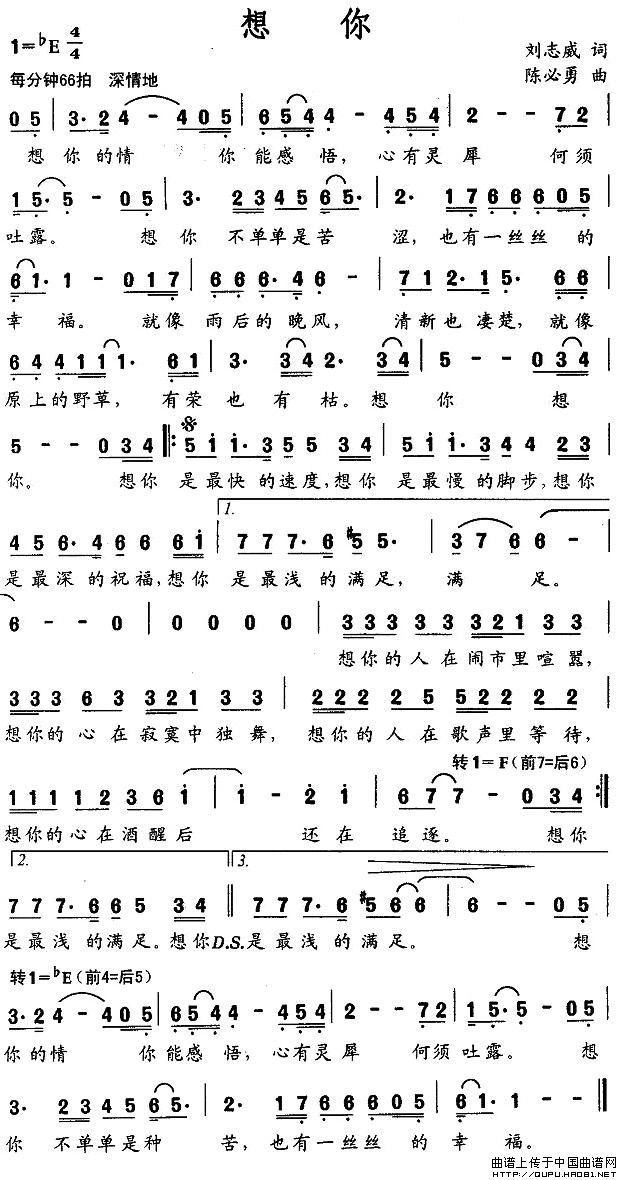 想 你
1=♭E 4/4
刘志威 词
每分钟66拍 深情地
陈必勇 曲
0 5 | 3· 2 4 - 4 0 5 | 6 5 4 4 - 4 5 4 | 2 - - 7 2 |
想 你 的 情 你 能 感 悟, 心 有 灵 犀 何 须
1 5· 5 - 0 5 | 3· 2 3 4 5 6 5· | 2· 1 7 6 6 6 0 5 |
吐 露。 想 你 不 单 单 是 苦 涩, 也 有 一 丝 丝 的
6 1· 1 - 0 1 7 | 6 6 6· 4 6 - | 7 1 2· 1 5· 6 6 |
幸 福。 就 像 雨 后 的 晚 风, 清 新 也 凄 楚, 就 像
6 4 4 1 1 1· 6 1 | 3· 3 4 2· 3 4 | 5 - - 0 3 4 |
原 上 的 野 草, 有 荣 也 有 枯。 想 你 想
5 - - 0 3 4 |: 5 i i· 3 5 5 3 4 | 5 i i· 3 4 4 2 3 |
你。 想 你 是 最 快 的 速 度, 想 你 是 最 慢 的 脚 步, 想 你
1.
4 5 6· 4 6 6 6 i | 7 7 7· 6 #5 5· | 3 7 6 6 - |
是 最 深 的 祝 福, 想 你 是 最 浅 的 满 足, 满 足。
6 - - 0 | 0 0 0 0 | 3 3 3 3 3 3 3 2 1 3 3 |
想 你 的 人 在 闹 市 里 喧 嚣,
3 3 3 6 3 3 2 1 3 3 | 2 2 2 2 5 5 2 2 2 2 |
想 你 的 心 在 寂 寞 中 独 舞, 想 你 的 人 在 歌 声 里 等 待,
转1=F(前7=后6)
1 1 1 1 2 3 6 i | i - 2 i | 6 7 7 - 0 3 4 :|
想 你 的 心 在 酒 醒 后 还 在 追 逐。 想 你
2. 3.
7 7 7· 6 6 5 3 4 || 7 7 7· 6 #5 6 6 | 6 - - 0 5 |
是 最 浅 的 满 足。 想 你 D.S. 是 最 浅 的 满 足。 想
转1=♭E(前4=后5)
3· 2 4 - 4 0 5 | 6 5 4 4 - 4 5 4 | 2 - - 7 2 | 1 5· 5 - 0 5 |
你 的 情 你 能 感 悟, 心 有 灵 犀 何 须 吐 露。 想
3· 2 3 4 5 6 5· | 2· 1 7 6 6 6 0 5 | 6 1· 1 - - ‖
你 不 单 单 是 种 苦, 也 有 一 丝 丝 的 幸 福。
曲谱上传于中国曲谱网
http://QUPU.HAO81.NET